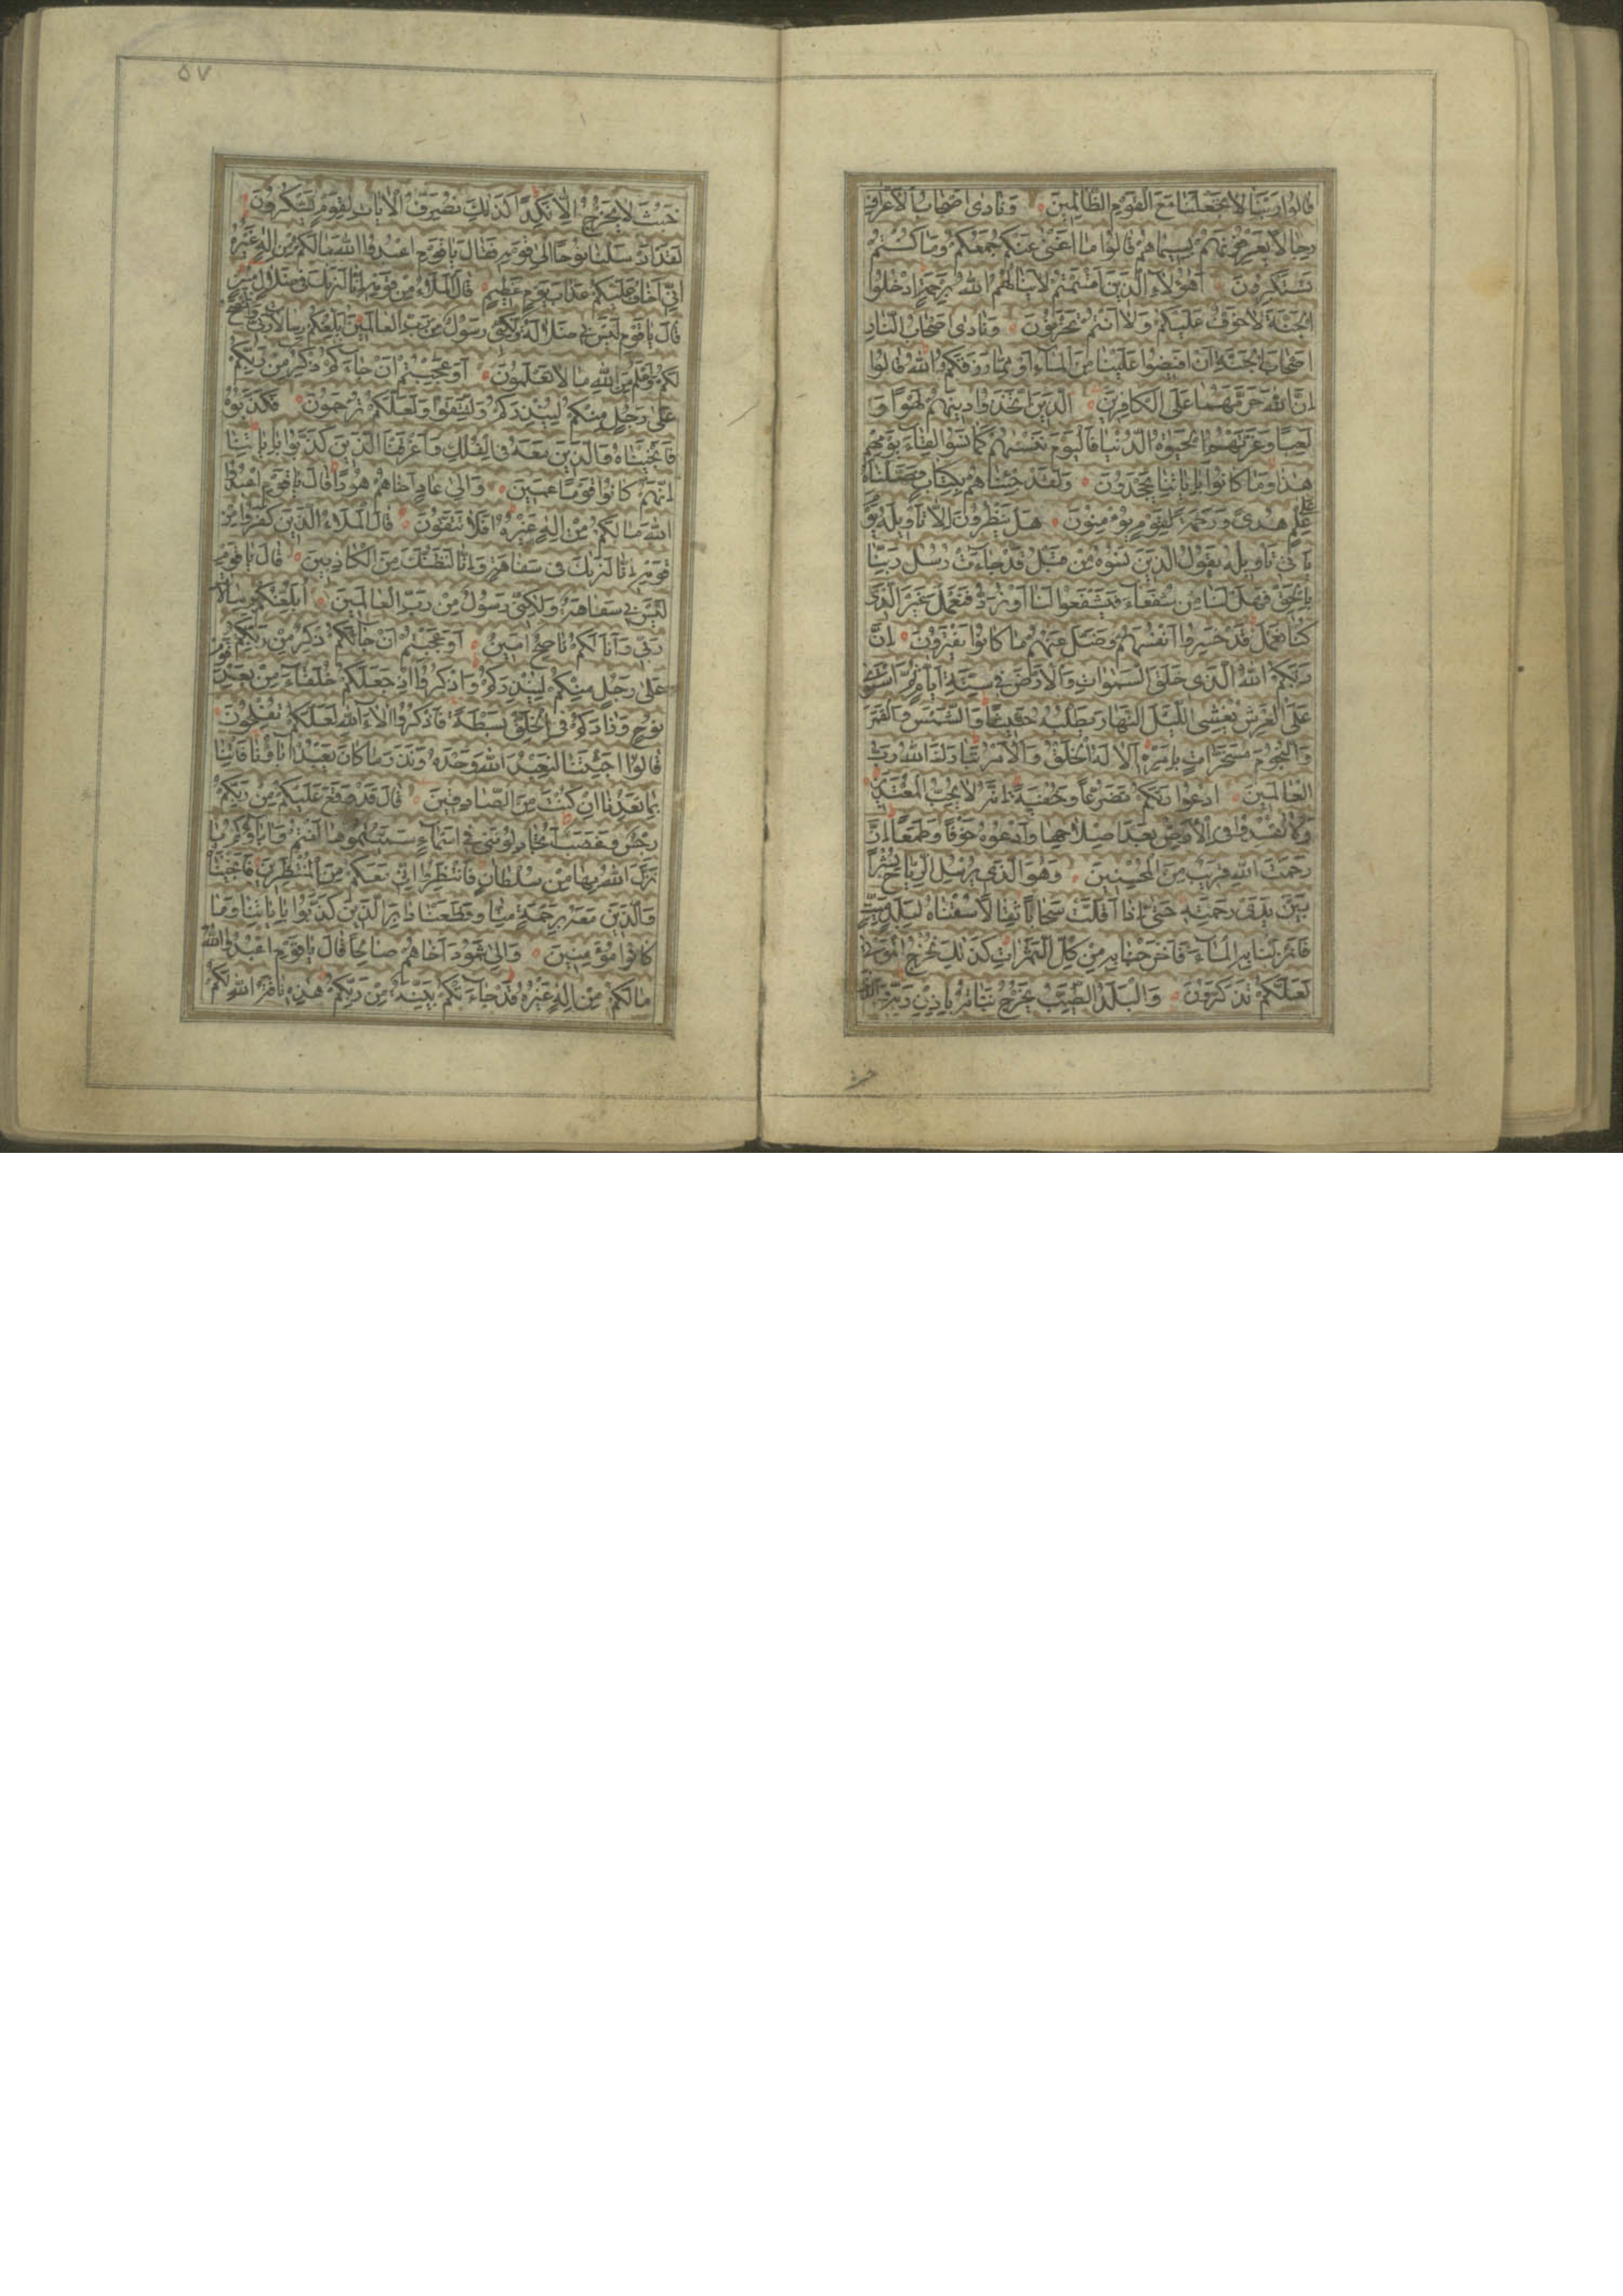 قالوا ربنا لا تجعلنا مع القوم الظالمين ونادى اصحاب الاعراف
رجالا يعرفونهم بسيماهم قالوا ما اغنى عنكم جمعكم وما كنتم
تستكبرون اهؤلاء الذين اقسمتم لا ينالهم الله برحمة ادخلوا
الجنة لا خوف عليكم ولا انتم تحزنون ونادى اصحاب النار
اصحاب الجنة ان افيضوا علينا من الماء او مما رزقكم الله قالوا
ان الله حرمهما على الكافرين الذين اتخذوا دينهم لهوا و
لعبا وغرتهم الحيوة الدنيا فاليوم ننسيهم كما نسوا لقاء يومهم
هذا وما كانوا باياتنا يجحدون ولقد جئناهم بكتاب فصلناه
على علم هدى ورحمة لقوم يؤمنون هل ينظرون الا تأويله يوم
يأتى تأويله يقول الذين نسوه من قبل قد جاءت رسل ربنا
بالحق فهل لنا من شفعاء فيشفعوا لنا او نرد فنعمل غير الذى
كنا نعمل قد خسروا انفسهم وضل عنهم ما كانوا يفترون ان
ربكم الله الذى خلق السموات والارض فى ستة ايام ثم استوى
على العرش يغشى الليل النهار يطلبه حثيثا والشمس والقمر
والنجوم مسخرات بامره الا له الخلق والامر تبارك الله رب
العالمين ادعوا ربكم تضرعا وخفية انه لا يحب المعتدين
ولا تفسدوا فى الارض بعد اصلاحها وادعوه خوفا وطمعا ان
رحمت الله قريب من المحسنين وهو الذى يرسل الرياح بشرا
بين يدى رحمته حتى اذا اقلت سحابا ثقالا سقناه لبلد ميت
فانزلنا به الماء فاخرجنا به من كل الثمرات كذلك نخرج الموتى
لعلكم تذكرون والبلد الطيب يخرج نباته باذن ربه والذى
۵۷
خبث لا يخرج الا نكدا كذلك نصرف الايات لقوم يشكرون
لقد ارسلنا نوحا الى قومه فقال يا قوم اعبدوا الله ما لكم من اله غيره
انى اخاف عليكم عذاب يوم عظيم قال الملاء من قومه انا لنريك فى ضلال مبين
قال يا قوم ليس بى ضلالة ولكنى رسول من رب العالمين ابلغكم رسالات ربى وانصح
لكم واعلم من الله ما لا تعلمون اوعجبتم ان جاءكم ذكر من ربكم
على رجل منكم لينذركم ولتتقوا ولعلكم ترحمون فكذبوه
فانجيناه والذين معه فى الفلك واغرقنا الذين كذبوا باياتنا
انهم كانوا قوما عمين والى عاد اخاهم هودا قال يا قوم اعبدوا
الله ما لكم من اله غيره افلا تتقون قال الملاء الذين كفروا من
قومه انا لنريك فى سفاهة وانا لنظنك من الكاذبين قال يا قوم
ليس بى سفاهة ولكنى رسول من رب العالمين ابلغكم رسالات
ربى وانا لكم ناصح امين اوعجبتم ان جاءكم ذكر من ربكم
على رجل منكم لينذركم واذكروا اذ جعلكم خلفاء من بعد قوم
نوح وزادكم فى الخلق بسطة فاذكروا الاء الله لعلكم تفلحون
قالوا اجئتنا لنعبد الله وحده ونذر ما كان يعبد اباؤنا فاتنا
بما تعدنا ان كنت من الصادقين قال قد وقع عليكم من ربكم
رجس وغضب اتجادلوننى فى اسماء سميتموها انتم واباؤكم ما
نزل الله بها من سلطان فانتظروا انى معكم من المنتظرين فانجيناه
والذين معه برحمة منا وقطعنا دابر الذين كذبوا باياتنا وما
كانوا مؤمنين والى ثمود اخاهم صالحا قال يا قوم اعبدوا الله
ما لكم من اله غيره قد جاءتكم بينة من ربكم هذه ناقة الله لكم